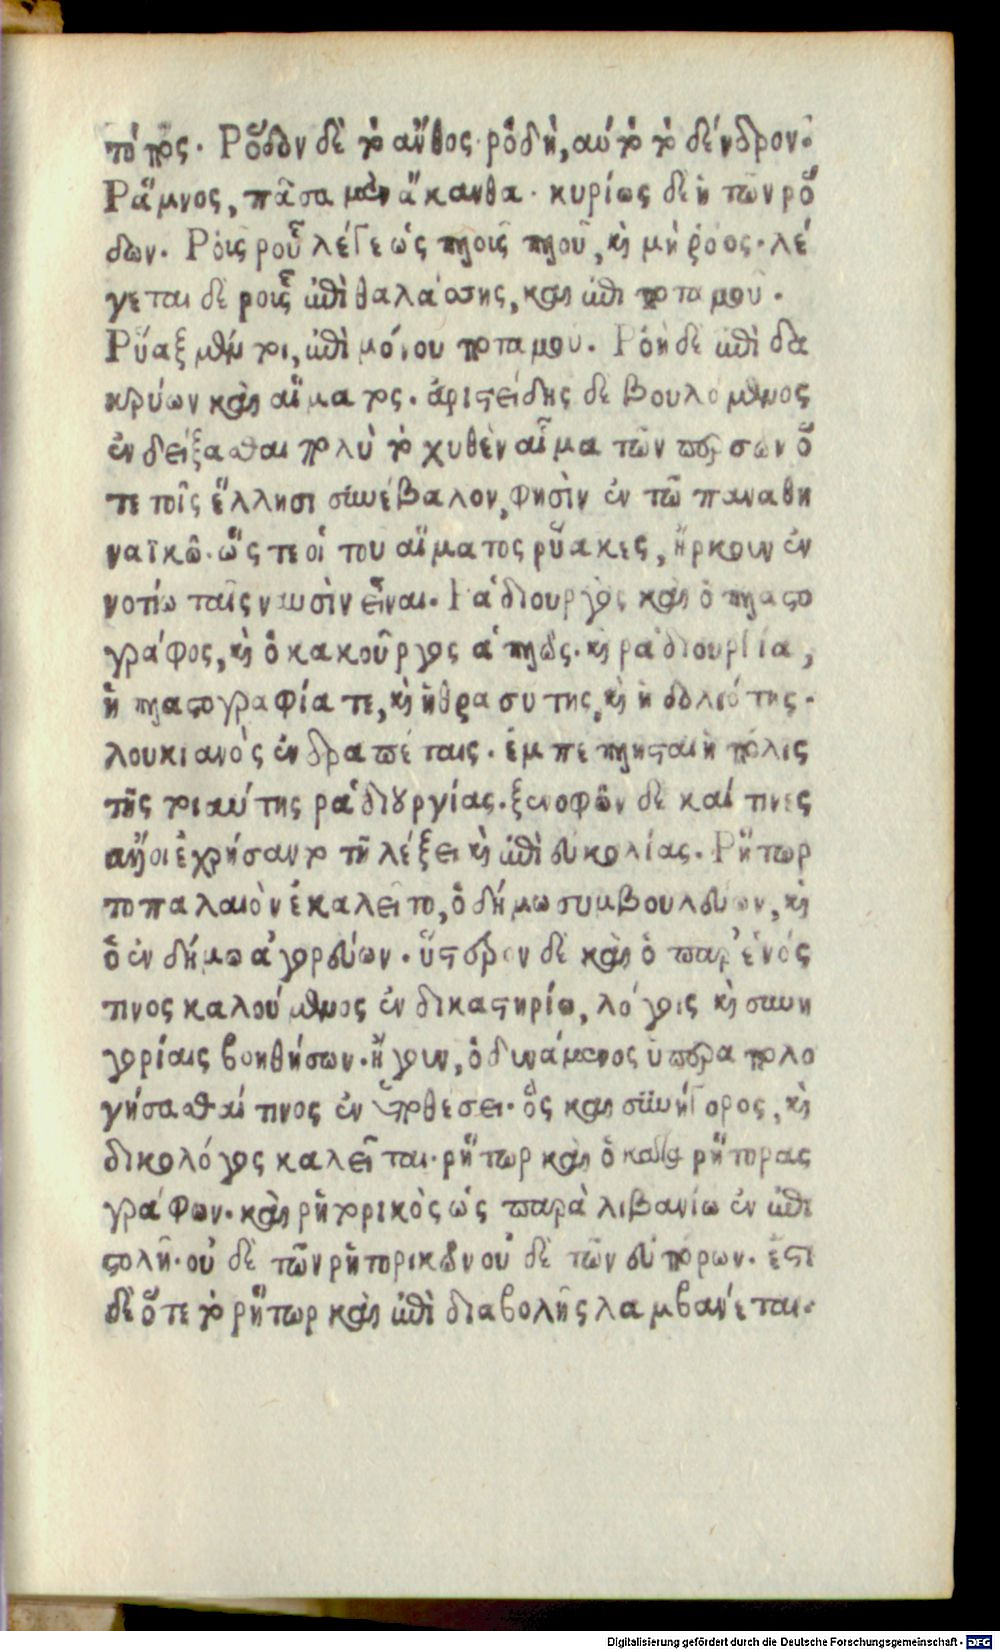 τότης. Ῥόδον δὲ τὸ ἄνθος· ῥοδῆ, αὐτὸ τὸ δένδρον.
Ῥάμνος, πᾶσα μὲν ἄκανθα. κυρίως δὲ ἡ τῶν ῥό
δων. Ῥοῖς ῥοῦ λέγε ὡς πλοῖς πλοῦ, καὶ μὴ ῥόος. λέ
γεται δὲ ῥοῖς ἐπὶ θαλάσσης, καὶ ἐπὶ ποταμοῦ.
Ῥύαξ μέντοι, ἐπὶ μόνου ποταμοῦ. Ῥοὴ δὲ ἐπὶ δα
κρύων καὶ αἵματος. ἀριστείδης δὲ βουλόμενος
ἐνδείξασθαι πολὺ τὸ χυθὲν αἷμα τῶν περσῶν ὅ
τε τοῖς ἕλλησι συνέβαλον, φησὶν ἐν τῷ παναθη
ναϊκῷ. ὥς τε οἱ τοῦ αἵματος ῥύακες, ἤρκουν ἐν
νοτίῳ ταῖς ναυσὶν εἶναι. Ῥᾳδιουργὸς καὶ ὁ πλαστο
γράφος, καὶ ὁ κακοῦργος ἁπλῶς. καὶ ῥᾳδιουργία,
ἡ πλαστογραφία τε, καὶ ἡ θρασύτης, καὶ ἡ δολιότης.
λουκιανὸς ἐν δραπέταις. ἐμπέπλησται ἡ πόλις
τῆς τοιαύτης ῥᾳδιουργίας. ξενοφῶν δὲ καί τινες
ἄλλοι ἐχρήσαντο τῇ λέξει καὶ ἐπὶ εὐκολίας. Ῥήτωρ
τοπαλαιὸν ἐκαλεῖτο, ὁ δήμῳ συμβουλεύων, καὶ
ὁ ἐν δήμῳ ἀγορεύων. ὕστερον δὲ καὶ ὁ παρ' ἑνός
τινος καλούμενος ἐν δικαστηρίῳ, λόγοις καὶ συνη
γορίαις βοηθήσων. ἤγουν, ὁ δυνάμενος ὑπεραπολο
γήσασθαί τινος ἐν ὑποθέσει. ὃς καὶ συνήγορος, καὶ
δικολόγος καλεῖται. ῥήτωρ καὶ ὁ κατὰ ῥήτορας
γράφων. καὶ ῥητορικὸς ὡς παρὰ λιβανίῳ ἐν ἐπι
στολῇ. οὐ δὲ τῶν ῥητορικῶν οὐ δὲ τῶν εὐπόρων. ἔστι
δὲ ὅτε τὸ ῥήτωρ καὶ ἐπὶ διαβολῆς λαμβάνεται.